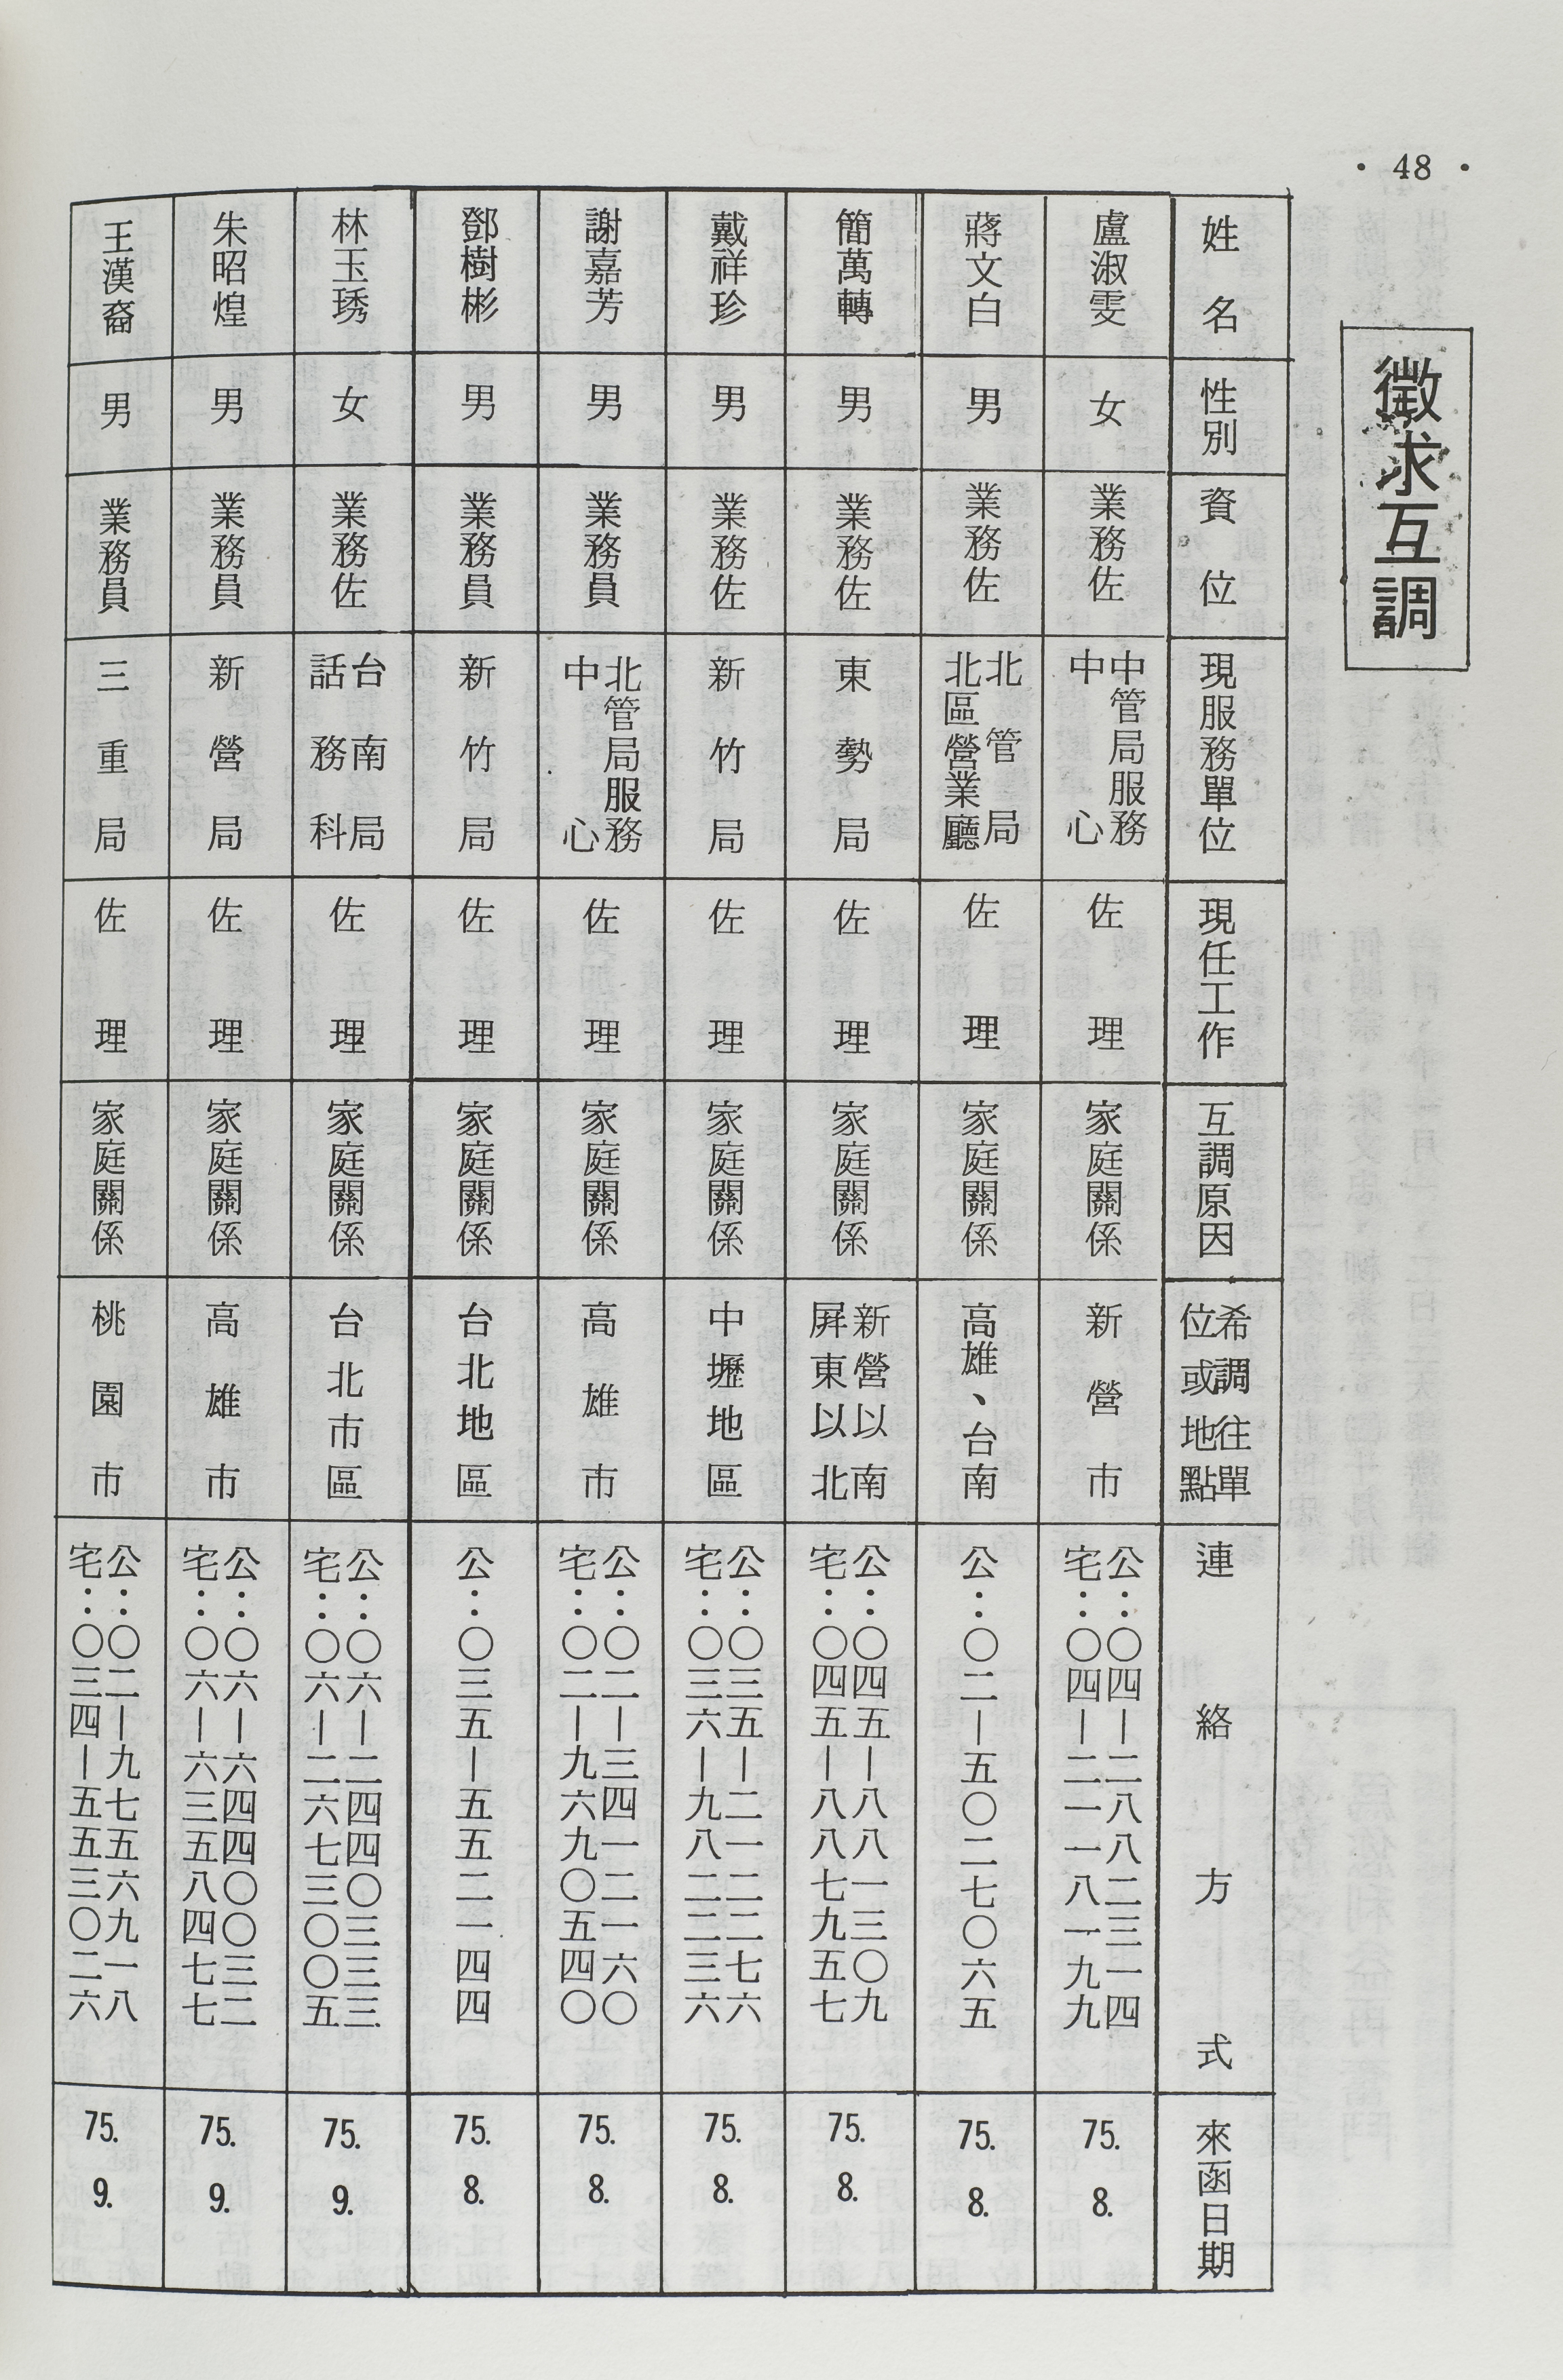 • 48 •
徵求互調
姓名
性別
資位
現服務單位
現任工作
互調原因
希調往單
位或地點
連絡方式
來函日期
盧淑雯
女
業務佐
中管局服務
中心
佐理
家庭關係
新營市
公：〇四—二八八二三一四
宅：〇四—二一一八一九九
75.
8.
蔣文白
男
業務佐
北管局
北區營業廳
佐理
家庭關係
高雄、台南
公：〇二—五〇二七〇六五
75.
8.
簡萬轉
男
業務佐
東勢局
佐理
家庭關係
新營以南
屏東以北
公：〇四五—八八一三〇九
宅：〇四五—八八七九五七
75.
8.
戴祥珍
男
業務佐
新竹局
佐理
家庭關係
中壢地區
公：〇三五—二一二二七六
宅：〇三六—九八二二三六
75.
8.
謝嘉芳
男
業務員
北管局服務
中心
佐理
家庭關係
高雄市
公：〇二—三四一二一六〇
宅：〇二—九六九〇五四〇
75.
8.
鄧樹彬
男
業務員
新竹局
佐理
家庭關係
台北地區
公：〇三五—五五二一四四
75.
8.
林玉琇
女
業務佐
台南局
話務科
佐理
家庭關係
台北市區
公：〇六—二四四〇三三三
宅：〇六—二六七三〇〇五
75.
9.
朱昭煌
男
業務員
新營局
佐理
家庭關係
高雄市
公：〇六—六四四〇〇三二
宅：〇六—六三五八四七七
75.
9.
王漢裔
男
業務員
三重局
佐理
家庭關係
桃園市
公：〇二—九七五六九一八
宅：〇三四—五五三〇二六
75.
9.